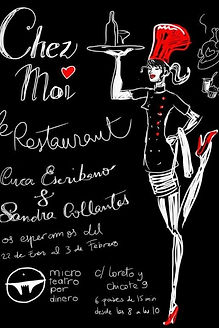 Chez
Moi
Restaurant
Cuca Escribano
&
Sandra Collantes
os esperamos del
22 de Enero al 3 de Febrero
micro
teatro
por
dinero
c/ Loreto y
Chicote 9
6 pases de 15 min
desde las 8 a las 10